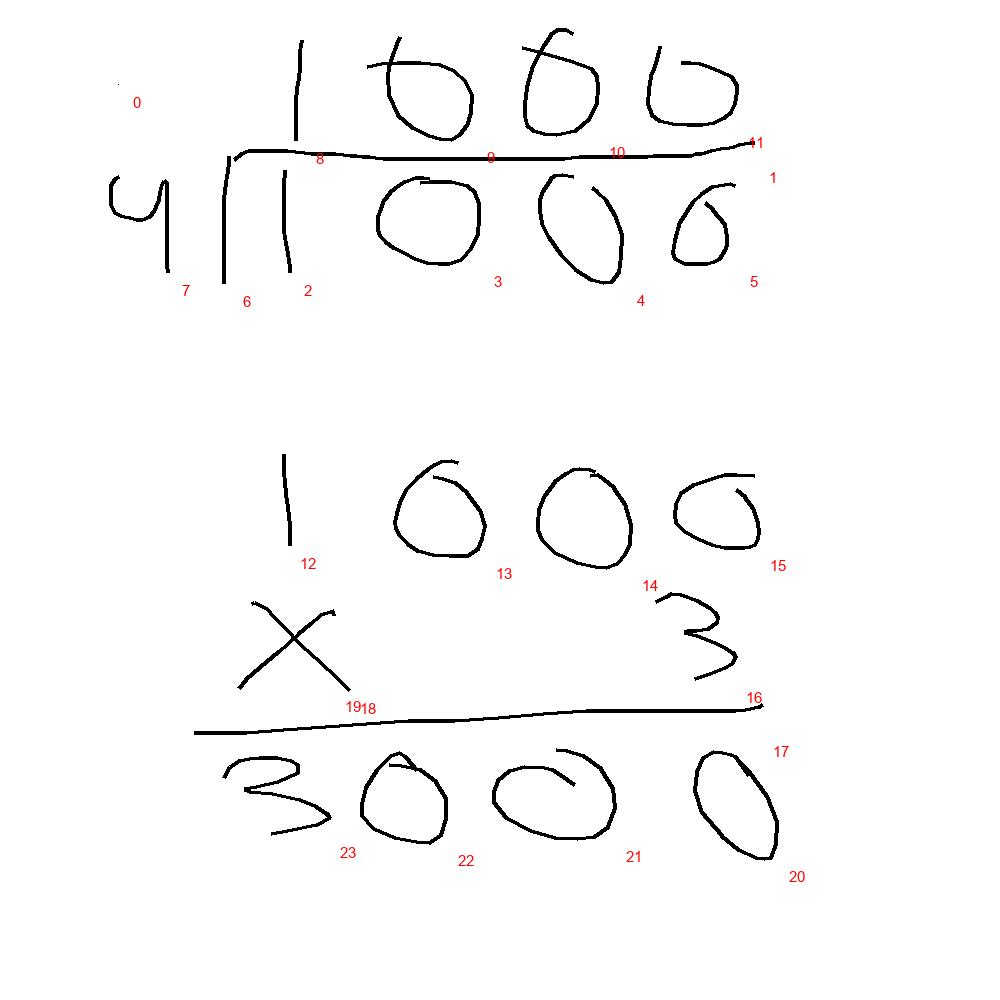 1000
0
8 9 10 11
4)1000
1
7 6 2 3 4 5
1000
12 13 14 15
× 3
19 18 16
17
3000
23 22 21 20